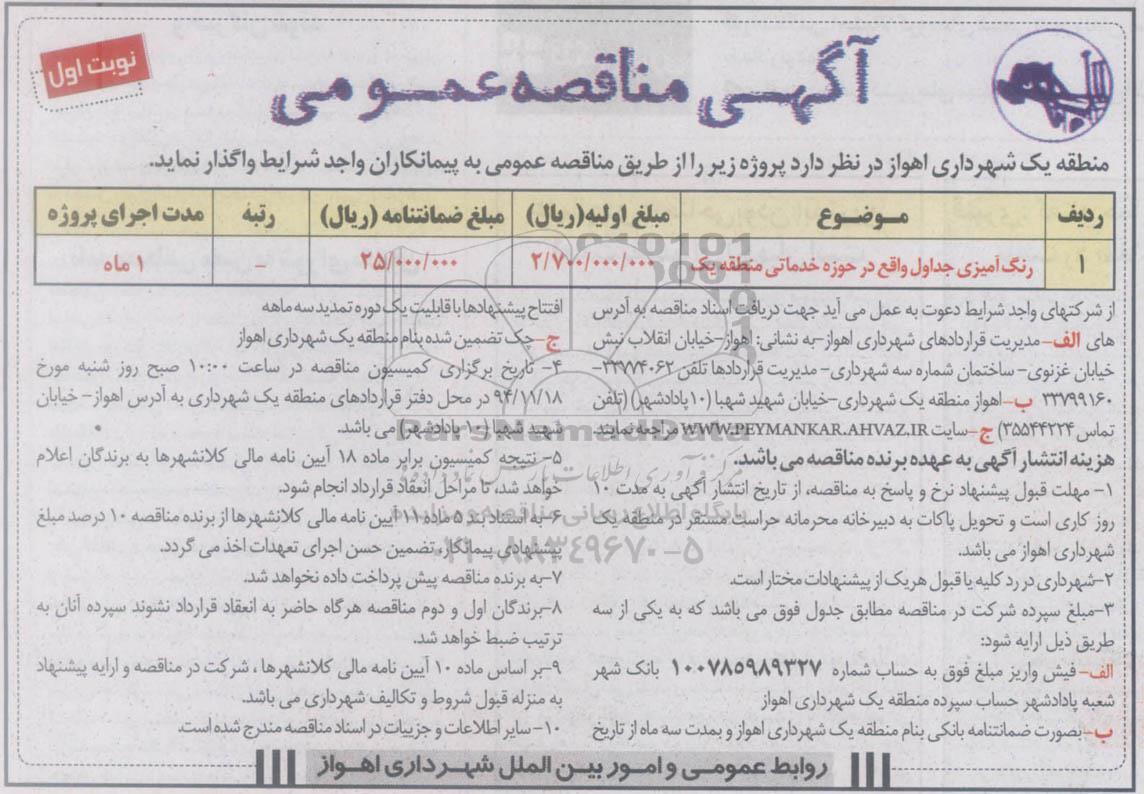 نوبت اول
آگهی مناقصه عمومی
منطقه یک شهرداری اهواز در نظر دارد پروژه زیر را از طریق مناقصه عمومی به پیمانکاران واجد شرایط واگذار نماید.
ردیف موضوع مبلغ اولیه(ریال) مبلغ ضمانتنامه (ریال) رتبه مدت اجرای پروژه
۱ رنگ آمیزی جداول واقع در حوزه خدماتی منطقه یک ۲/۷۰۰/۰۰۰/۰۰۰ ۲۵/۰۰۰/۰۰۰ - ۱ ماه
از شرکتهای واجد شرایط دعوت به عمل می آید جهت دریافت اسناد مناقصه به آدرس
های الف-مدیریت قراردادهای شهرداری اهواز-به نشانی: اهواز-خیابان انقلاب نبش
خیابان غزنوی- ساختمان شماره سه شهرداری- مدیریت قراردادها تلفن ۳۳۷۷۴۰۶۲-
۳۳۷۹۹۱۶۰ ب-اهواز منطقه یک شهرداری-خیابان شهید شهبا (۱۰پادادشهر) (تلفن
تماس ۳۵۵۴۴۲۲۴) ج-سایت WWW.PEYMANKAR.AHVAZ.IR مراجعه نمایند.
هزینه انتشار آگهی به عهده برنده مناقصه می باشد.
۱- مهلت قبول پیشنهاد نرخ و پاسخ به مناقصه، از تاریخ انتشار آگهی به مدت ۱۰
روز کاری است و تحویل پاکات به دبیرخانه محرمانه حراست مستقر در منطقه یک
شهرداری اهواز می باشد.
۲-شهرداری در رد کلیه یا قبول هریک از پیشنهادات مختار است.
۳-مبلغ سپرده شرکت در مناقصه مطابق جدول فوق می باشد که به یکی از سه
طریق ذیل ارایه شود:
الف- فیش واریز مبلغ فوق به حساب شماره ۱۰۰۷۸۵۹۸۹۳۲۷ بانک شهر
شعبه پادادشهر حساب سپرده منطقه یک شهرداری اهواز
ب-بصورت ضمانتنامه بانکی بنام منطقه یک شهرداری اهواز و بمدت سه ماه از تاریخ
افتتاح پیشنهادها با قابلیت یک دوره تمدید سه ماهه
ج-چک تضمین شده بنام منطقه یک شهرداری اهواز
۴- تاریخ برگزاری کمیسیون مناقصه در ساعت ۱۰:۰۰ صبح روز شنبه مورخ
۹۴/۱۱/۱۸ در محل دفتر قراردادهای منطقه یک شهرداری به آدرس اهواز- خیابان
شهید شهبا (۱۰ پادادشهر) می باشد.
۵- نتیجه کمیسیون برابر ماده ۱۸ آیین نامه مالی کلانشهرها به برندگان اعلام
خواهد شد، تا مراحل انعقاد قرارداد انجام شود.
۶-به استناد بند ۵ ماده ۱۱ آیین نامه مالی کلانشهرها از برنده مناقصه ۱۰ درصد مبلغ
پیشنهادی پیمانکار، تضمین حسن اجرای تعهدات اخذ می گردد.
۷-به برنده مناقصه پیش پرداخت داده نخواهد شد.
۸-برندگان اول و دوم مناقصه هرگاه حاضر به انعقاد قرارداد نشوند سپرده آنان به
ترتیب ضبط خواهد شد.
۹-بر اساس ماده ۱۰ آیین نامه مالی کلانشهرها ، شرکت در مناقصه و ارایه پیشنهاد
به منزله قبول شروط و تکالیف شهرداری می باشد.
۱۰- سایر اطلاعات و جزییات در اسناد مناقصه مندرج شده است.
روابط عمومی و امور بین الملل شهرداری اهواز
ParsNamadData
پایگاه اطلاع رسانی مناقصه و مزایده
۰۲۱-۸۸۳۴۹۶۷۰-۵